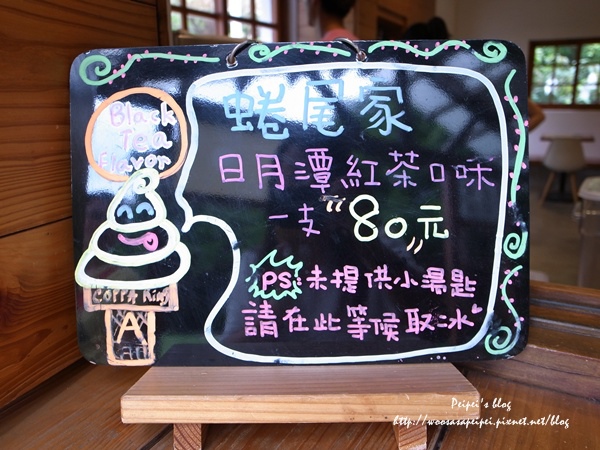 Black
Tea
Flavor
蜷尾家
日月潭紅茶口味
一支 "80元"
PS: 未提供小湯匙
請在此等候取冰
A
Peipei's blog
http://woosasapeipei.pixnet.net/blog